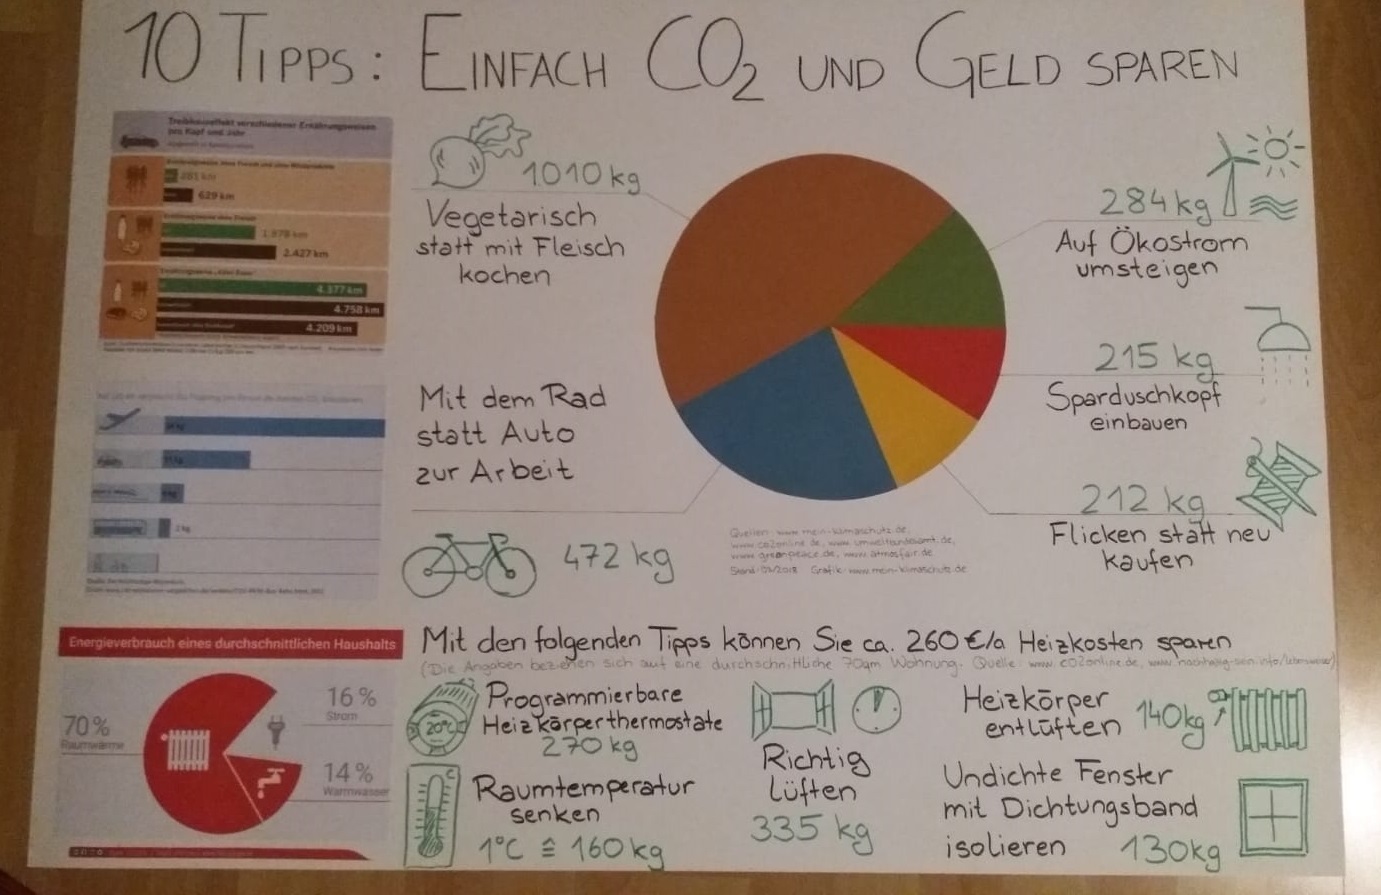 10 TIPPS: EINFACH CO2 UND GELD SPAREN
Treibhauseffekt verschiedener Ernährungsweisen
pro Kopf und Jahr
281 km
629 km
1.978 km
2.427 km
4.377 km
4.758 km
4.209 km
1010 kg
Vegetarisch
statt mit Fleisch
kochen
284 kg
Auf Ökostrom
umsteigen
215 kg
Sparduschkopf
einbauen
212 kg
Flicken statt neu
kaufen
Mit dem Rad
statt Auto
zur Arbeit
472 kg
Quellen: www.mein-klimaschutz.de,
www.co2online.de, www.umweltbundesamt.de,
www.greenpeace.de, www.atmosfair.de
Stand: 01/2018 Grafik: www.mein-klimaschutz.de
Energieverbrauch eines durchschnittlichen Haushalts
70 %
Raumwärme
16 %
Strom
14 %
Warmwasser
Mit den folgenden Tipps können Sie ca. 260 €/a Heizkosten sparen
(Die Angaben beziehen sich auf eine durchschnittliche 70qm Wohnung. Quelle: www.co2online.de,
Programmierbare
Heizkörperthermostate
20°C
270 kg
Raumtemperatur
senken
°C
1°C ≙ 160 kg
Richtig
lüften
335 kg
Heizkörper
entlüften
140kg
Undichte Fenster
mit Dichtungsband
isolieren
130kg